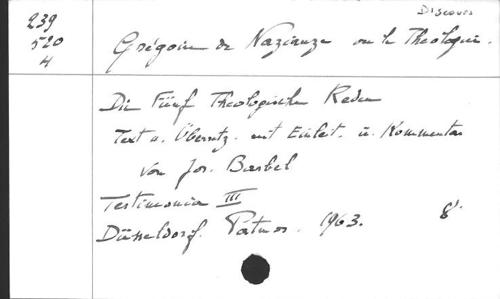 Discours
239
520
4
Grégoire de Nazianze ou le Théologien.
Die Fünf Theologischen Reden
Text u. Übersetz. mit Einleit. u. Kommentar
von Jos. Barbel
Testimonia III
Düsseldorf. Patmos. 1963. 8°